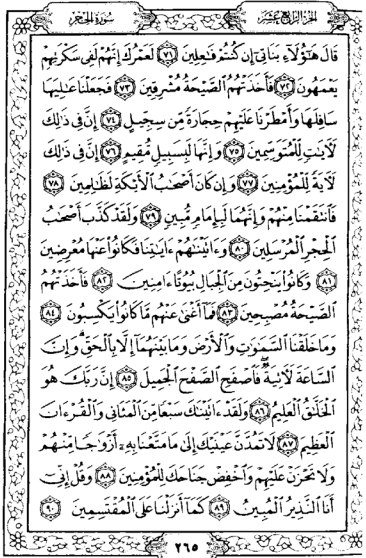 سُورَةُ الحِجْرِ الجُزْءُ الرَّابِعَ عَشَرَ
قَالَ هَٰٓؤُلَآءِ بَنَاتِىٓ إِن كُنتُمْ فَٰعِلِينَ ٧١ لَعَمْرُكَ إِنَّهُمْ لَفِى سَكْرَتِهِمْ
يَعْمَهُونَ ٧٢ فَأَخَذَتْهُمُ ٱلصَّيْحَةُ مُشْرِقِينَ ٧٣ فَجَعَلْنَا عَٰلِيَهَا
سَافِلَهَا وَأَمْطَرْنَا عَلَيْهِمْ حِجَارَةً مِّن سِجِّيلٍ ٧٤ إِنَّ فِى ذَٰلِكَ
لَأٓيَٰتٍ لِّلْمُتَوَسِّمِينَ ٧٥ وَإِنَّهَا لَبِسَبِيلٍ مُّقِيمٍ ٧٦ إِنَّ فِى ذَٰلِكَ
لَأٓيَةً لِّلْمُؤْمِنِينَ ٧٧ وَإِن كَانَ أَصْحَٰبُ ٱلْأَيْكَةِ لَظَٰلِمِينَ ٧٨
فَٱنتَقَمْنَا مِنْهُمْ وَإِنَّهُمَا لَبِإِمَامٍ مُّبِينٍ ٧٩ وَلَقَدْ كَذَّبَ أَصْحَٰبُ
ٱلْحِجْرِ ٱلْمُرْسَلِينَ ٨٠ وَءَاتَيْنَٰهُمْ ءَايَٰتِنَا فَكَانُوا۟ عَنْهَا مُعْرِضِينَ
٨١ وَكَانُوا۟ يَنْحِتُونَ مِنَ ٱلْجِبَالِ بُيُوتًا ءَامِنِينَ ٨٢ فَأَخَذَتْهُمُ
ٱلصَّيْحَةُ مُصْبِحِينَ ٨٣ فَمَآ أَغْنَىٰ عَنْهُم مَّا كَانُوا۟ يَكْسِبُونَ ٨٤
وَمَا خَلَقْنَا ٱلسَّمَٰوَٰتِ وَٱلْأَرْضَ وَمَا بَيْنَهُمَآ إِلَّا بِٱلْحَقِّ ۗ وَإِنَّ
ٱلسَّاعَةَ لَأٓتِيَةٌ ۖ فَٱصْفَحِ ٱلصَّفْحَ ٱلْجَمِيلَ ٨٥ إِنَّ رَبَّكَ هُوَ
ٱلْخَلَّٰقُ ٱلْعَلِيمُ ٨٦ وَلَقَدْ ءَاتَيْنَٰكَ سَبْعًا مِّنَ ٱلْمَثَانِى وَٱلْقُرْءَانَ
ٱلْعَظِيمَ ٨٧ لَا تَمُدَّنَّ عَيْنَيْكَ إِلَىٰ مَا مَتَّعْنَا بِهِۦٓ أَزْوَٰجًا مِّنْهُمْ
وَلَا تَحْزَنْ عَلَيْهِمْ وَٱخْفِضْ جَنَاحَكَ لِلْمُؤْمِنِينَ ٨٨ وَقُلْ إِنِّىٓ
أَنَا ٱلنَّذِيرُ ٱلْمُبِينُ ٨٩ كَمَآ أَنزَلْنَا عَلَى ٱلْمُقْتَسِمِينَ ٩٠
٢٦٥